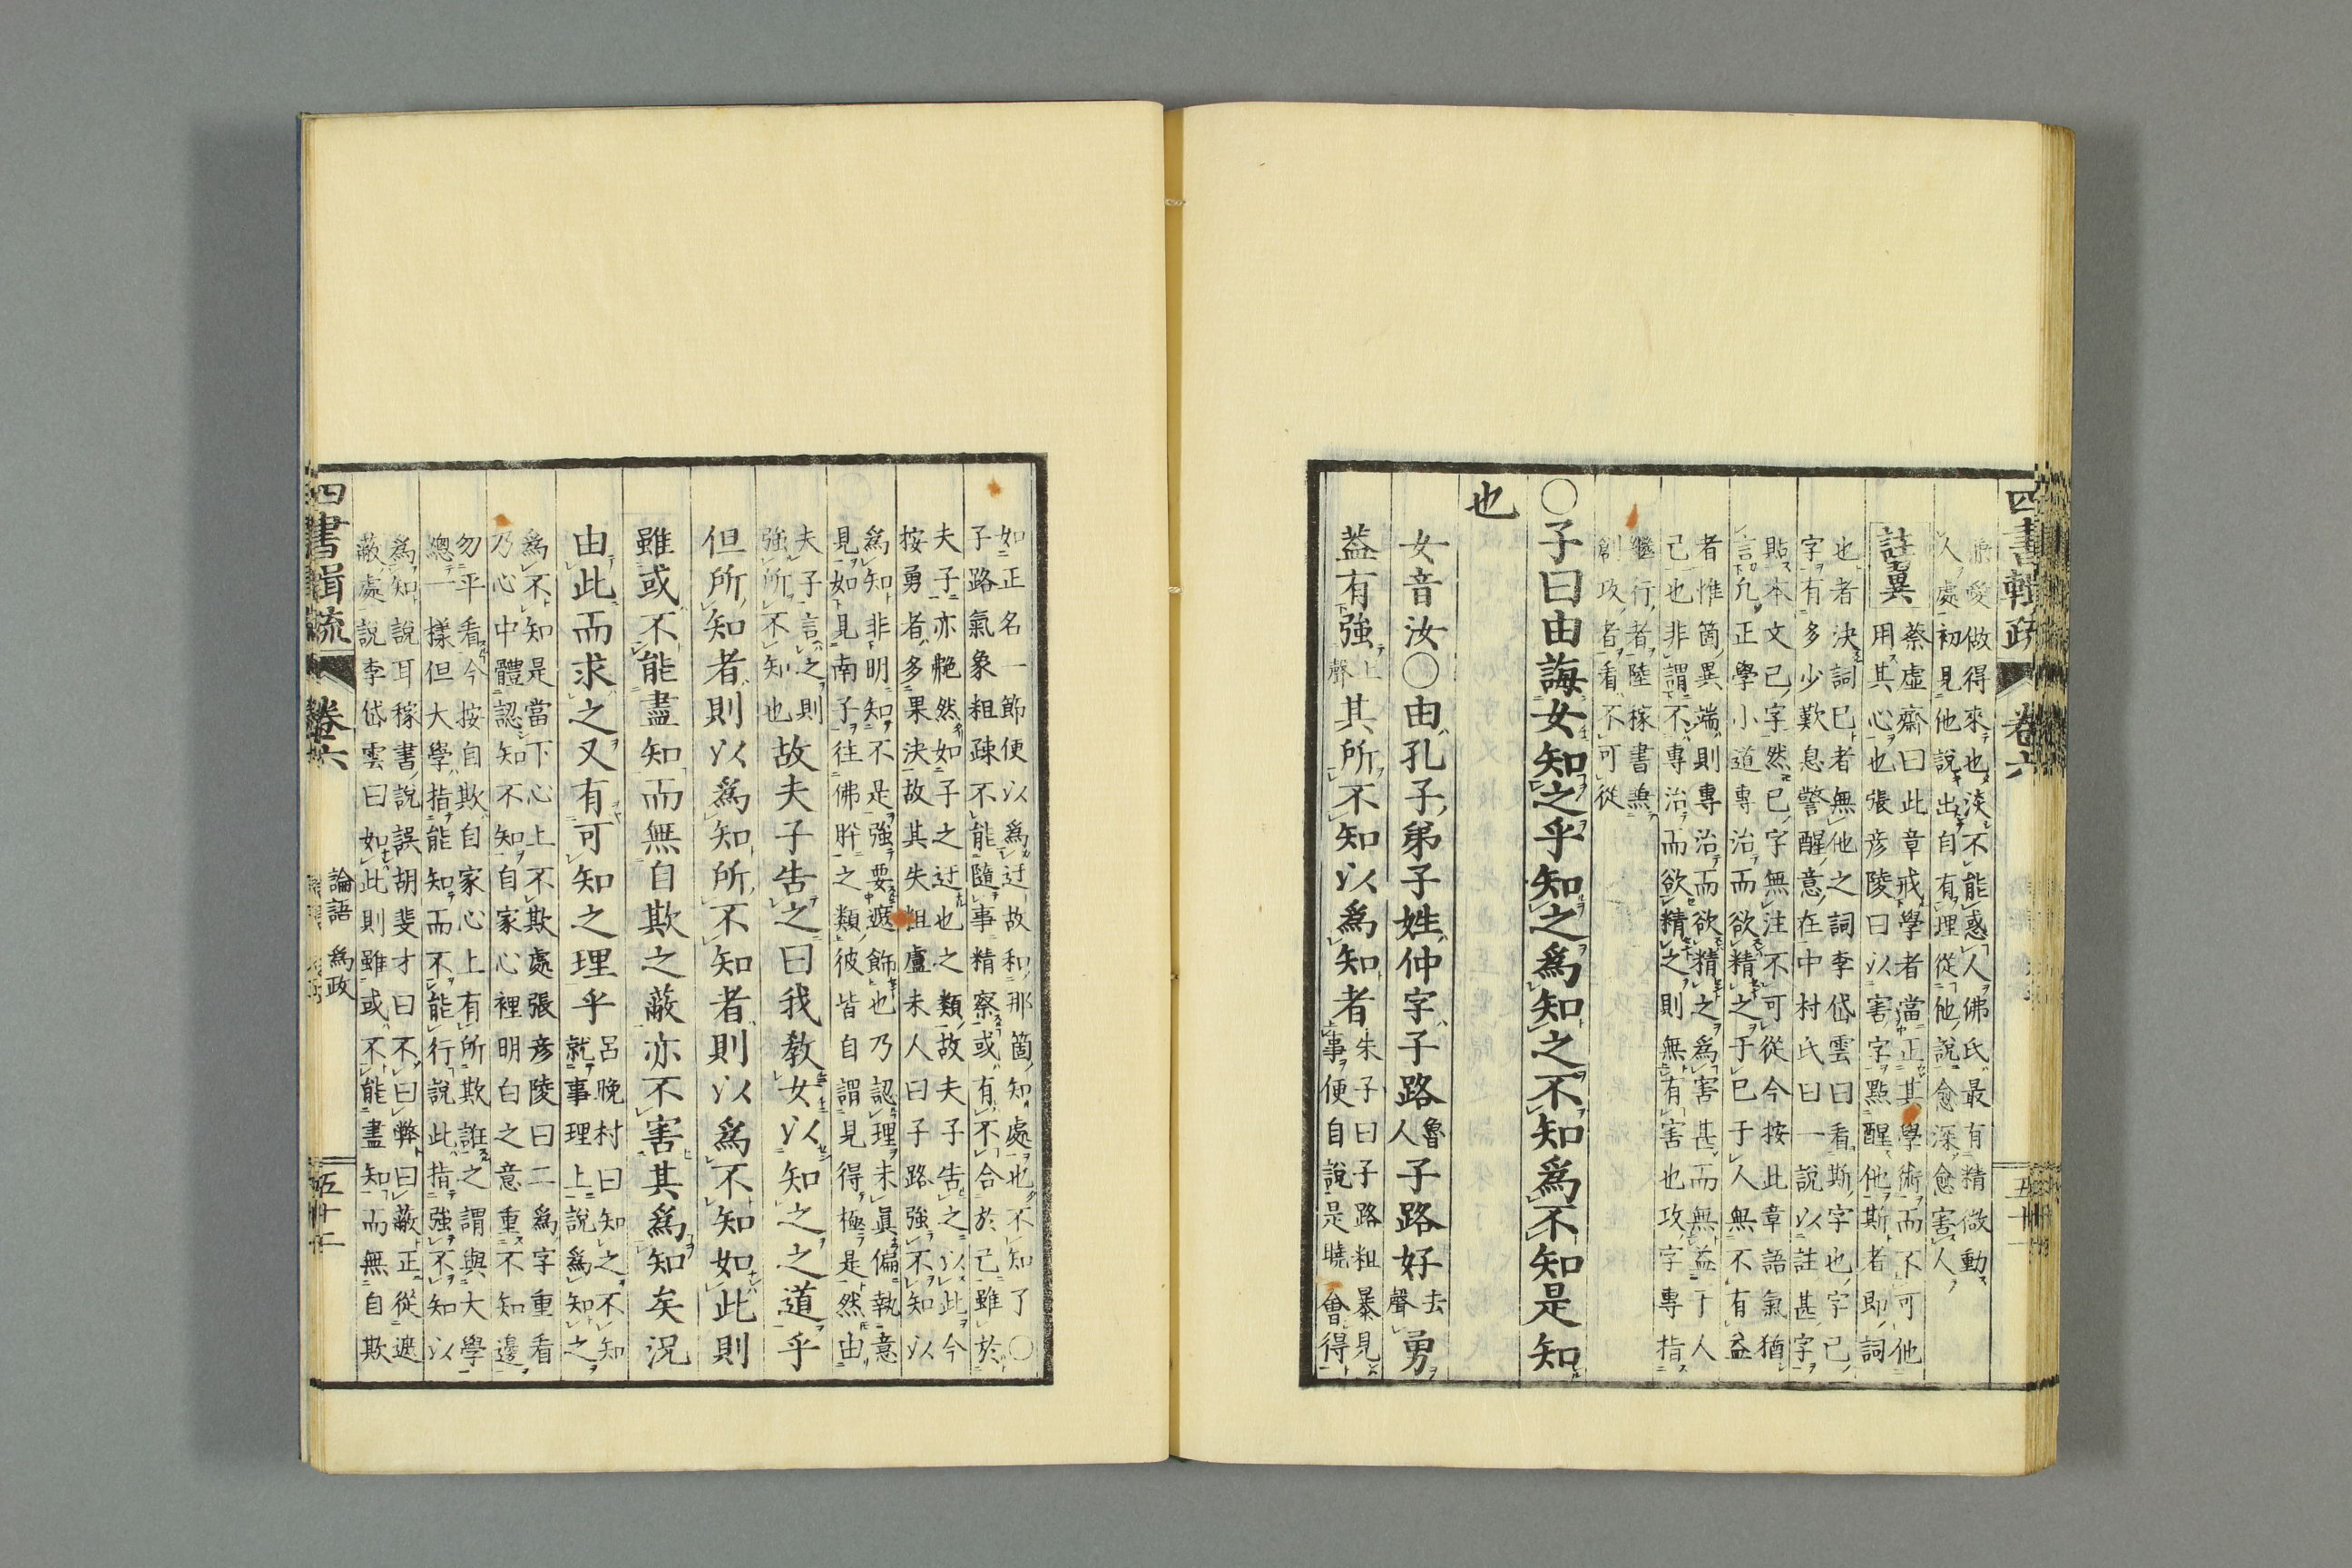 四書輯疏
卷六
五十一
兼愛做得來也淡不能惑人佛氏最有精微動
人處初見他說出自有理從他說愈深愈害人
註異
蔡虛齋曰此章戒學者當正其學術而不可他
用其心也張彦陵曰以害字點醒他斯者即詞
也者決詞已者無他之詞李岱雲曰看斯字也字已
字有多少歎息警醒意在中村氏曰一說以註甚字
貼本文已字然已字無注不可從今按此章語氣猶
言凢正學小道專治而欲精之于已于人無不有益
者惟箇異端則專治而欲精之爲害甚而無益于人
己也非謂不專治而欲精之則無有害也攻字專指
繼行者陸稼書兼
創攻者看不可從
〇子曰由誨女知之乎知之爲知之不知爲不知是知
也
女音汝〇由孔子弟子姓仲字子路魯人子路好去聲勇
葢有強上聲其所不知以爲知者朱子曰子路粗暴見
事便自說是曉會得
如正名一節便以爲迂故和那箇知處也不知了〇
子路氣象粗疎不能隨事精察或有不合於已雖於
夫子亦艴然如子之迂也之類故夫子告之以此今
按勇者多果決故其失粗盧未人曰子路強不知以
爲知非明知不是強要遮飾也乃認理未眞偏執意
見如見南子往佛肸之類彼皆自謂見得極是然由
夫子言之則
強所不知也
故夫子告之曰我教女以知之之道乎
但所知者則以爲知所不知者則以爲不知如此則
雖或不能盡知而無自欺之蔽亦不害其爲知矣況
由此而求之又有可知之理乎呂晚村曰知之不知
就事理上說爲知之
爲不知是當下心上不欺處張彦陵曰二爲字重看
乃心中體認知不知自家心裡明白之意重不知邊
勿平看今按自欺自家心上有所欺誑之謂與大學
總一樣但大學指能知而不能行說此指強不知以
爲知說耳稼書說誤胡斐才曰不曰弊曰蔽正從遮
蔽處說李岱雲曰如此則雖或不能盡知而無自欺
四書輯疏
卷六
論語 爲政
五十二